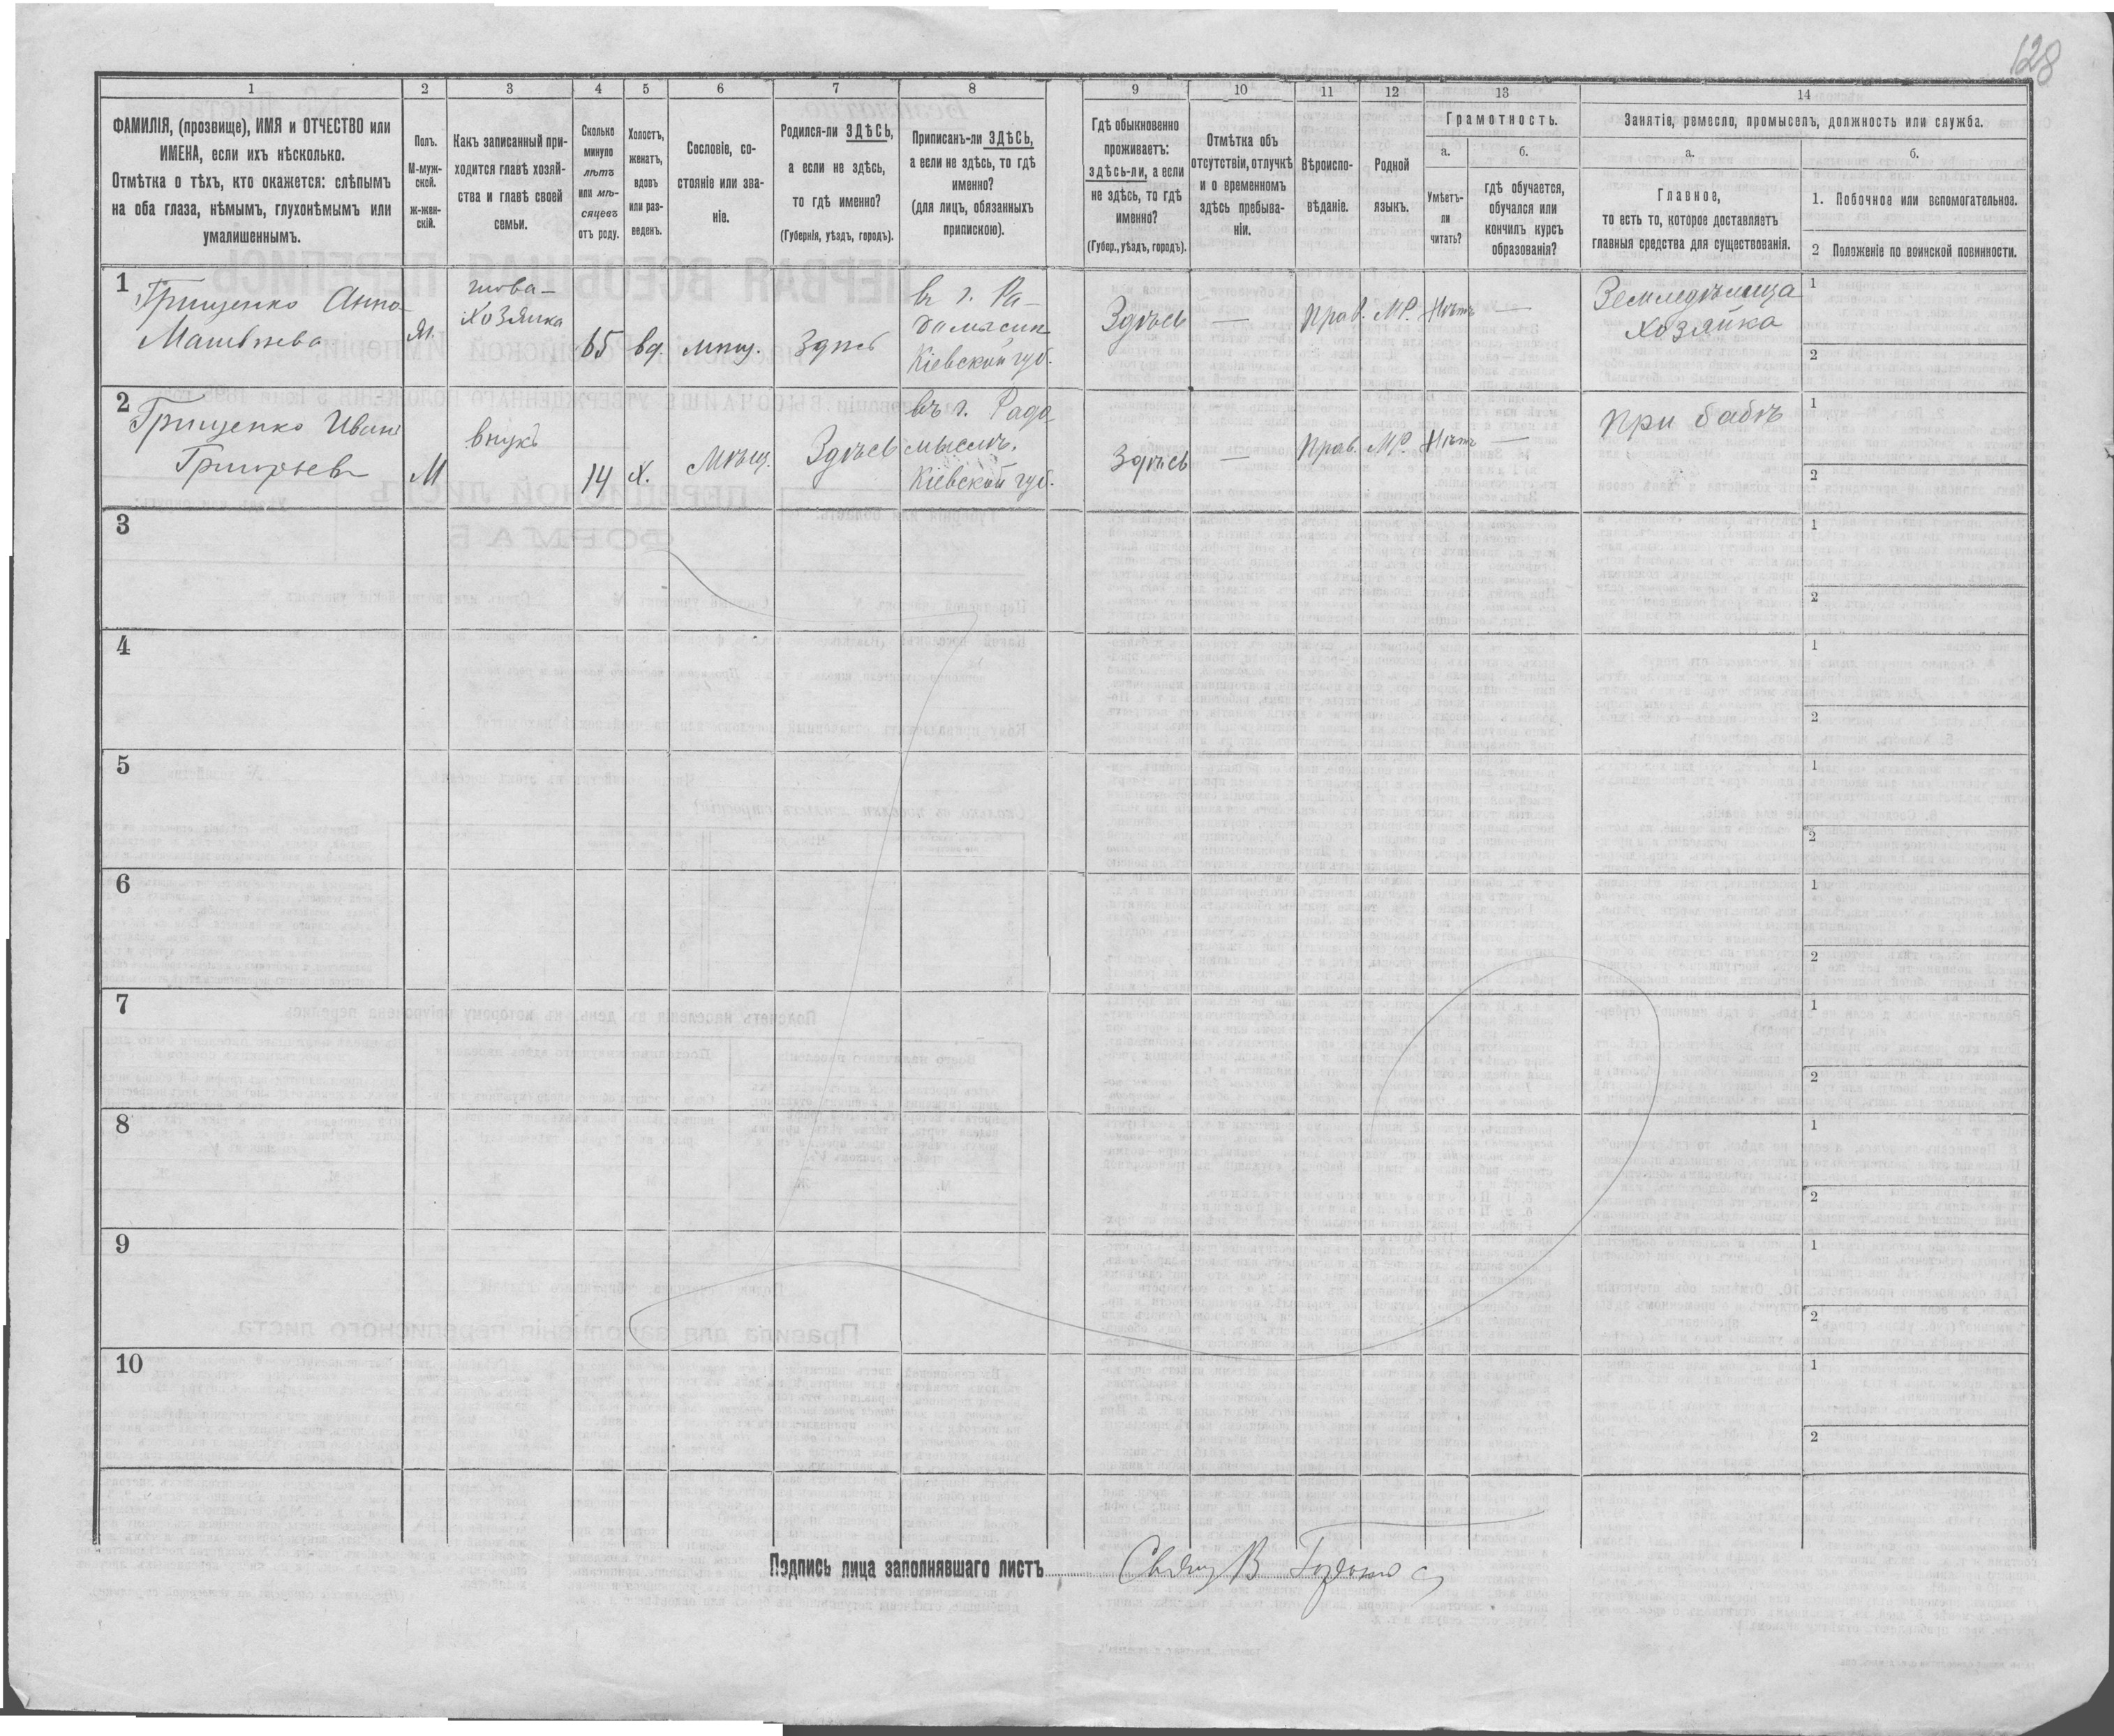 128
1 2 3 4 5 6 7 8 9 10 11 12 13 14
ФАМИЛІЯ, (прозвище), ИМЯ и ОТЧЕСТВО или
ИМЕНА, если ихъ нѣсколько.
Отмѣтка о тѣхъ, кто окажется: слѣпымъ
на оба глаза, нѣмымъ, глухонѣмымъ или
умалишеннымъ.
Полъ.
М-муж-
ской.
ж-жен-
скій.
Какъ записанный при-
ходится главѣ хозяй-
ства и главѣ своей
семьи.
Сколько
минуло
лѣтъ
или мѣ-
сяцевъ
отъ роду.
Холостъ,
женатъ,
вдовъ
или раз-
веденъ.
Сословіе, со-
стояніе или зва-
ніе.
Родился-ли ЗДѢСЬ,
а если не здѣсь,
то гдѣ именно?
(Губернія, уѣздъ, городъ).
Приписанъ-ли ЗДѢСЬ,
а если не здѣсь, то гдѣ
именно?
(для лицъ, обязанныхъ
припискою).
Гдѣ обыкновенно
проживаетъ:
здѣсь-ли, а если
не здѣсь, то гдѣ
именно?
(Губер., уѣздъ, городъ).
Отмѣтка объ
отсутствіи, отлучкѣ
и о временномъ
здѣсь пребыва-
ніи.
Вѣроиспо-
вѣданіе.
Родной
языкъ.
Грамотность.
а.
Умѣетъ-
ли
читать?
б.
гдѣ обучается,
обучался или
кончилъ курсъ
образованія?
Занятіе, ремесло, промыселъ, должность или служба.
а.
Главное,
то есть то, которое доставляетъ
главныя средства для существованія.
б.
1. Побочное или вспомогательное.
2 Положеніе по воинской повинности.
1
Грищенко Анна
Матвѣева
Ж.
глова-
хозяйка
65
вд.
мѣщ.
Здѣсь
въ г. Ра-
домысли
Кіевской губ.
Здѣсь
—
Прав.
МР.
Нѣтъ
—
Земледѣлица
хозяйка
1
2
2
Грищенко Иванъ
Григорьевъ
М
внукъ
14
х.
Мѣщ.
Здѣсь
въ г. Радо
мыслѣ.
Кіевской губ.
Здѣсь
—
Прав.
МР.
Нѣтъ
—
при бабѣ
1
2
3
1
2
4
1
2
5
1
2
6
1
2
7
1
2
8
1
2
9
1
2
10
1
2
Подпись лица заполнявшаго листъ